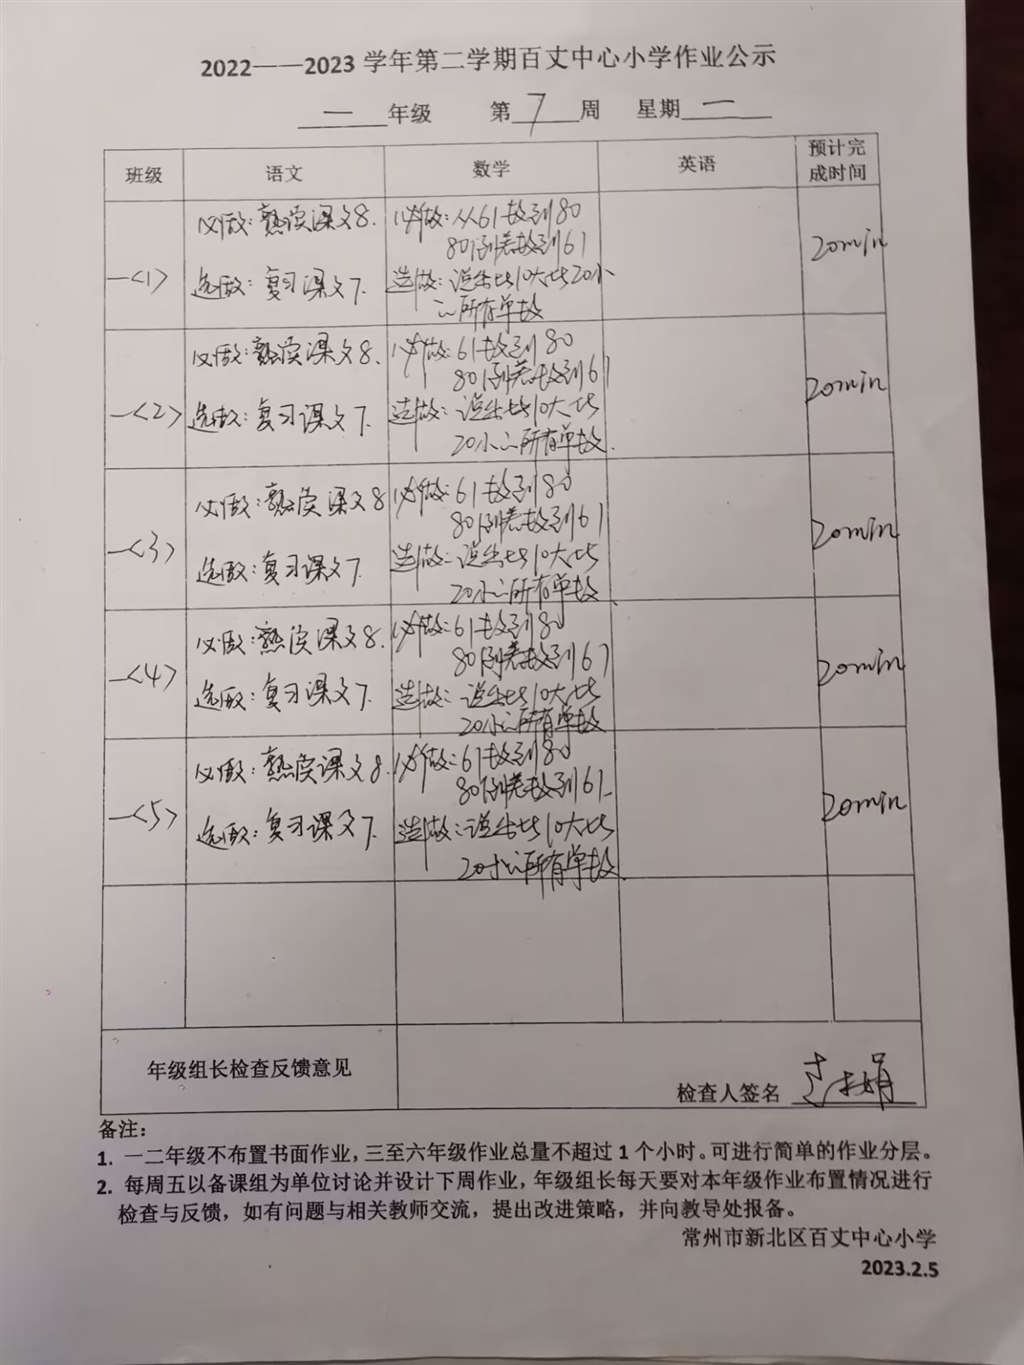 2022——2023 学年第二学期百丈中心小学作业公示
一 年级 第 7 周 星期 一
班级 语文 数学 英语 预计完成时间
一<1>
必做：熟读课文8.
选做：复习课文7.
必做：从61数到80
80倒着数到61
选做：说出比10大比20小
的所有单数
20min
一<2>
必做：熟读课文8.
选做：复习课文7.
必做：61数到80
80倒着数到61
选做：说出比10大比
20小的所有单数.
20min
一<3>
必做：熟读课文8
选做：复习课文7.
必做：61数到80
80倒着数到61
选做：说出比10大比
20小的所有单数.
20min
一<4>
必做：熟读课文8.
选做：复习课文7.
必做：61数到80
80倒着数到61
选做：说出比10大比
20小的所有单数
20min
一<5>
必做：熟读课文8.
选做：复习课文7.
必做：61数到80
80倒着数到61
选做：说出比10大比
20小的所有单数.
20min
年级组长检查反馈意见
检查人签名
备注：
1. 一二年级不布置书面作业，三至六年级作业总量不超过 1 个小时。可进行简单的作业分层。
2. 每周五以备课组为单位讨论并设计下周作业，年级组长每天要对本年级作业布置情况进行
检查与反馈，如有问题与相关教师交流，提出改进策略，并向教导处报备。
常州市新北区百丈中心小学
2023.2.5